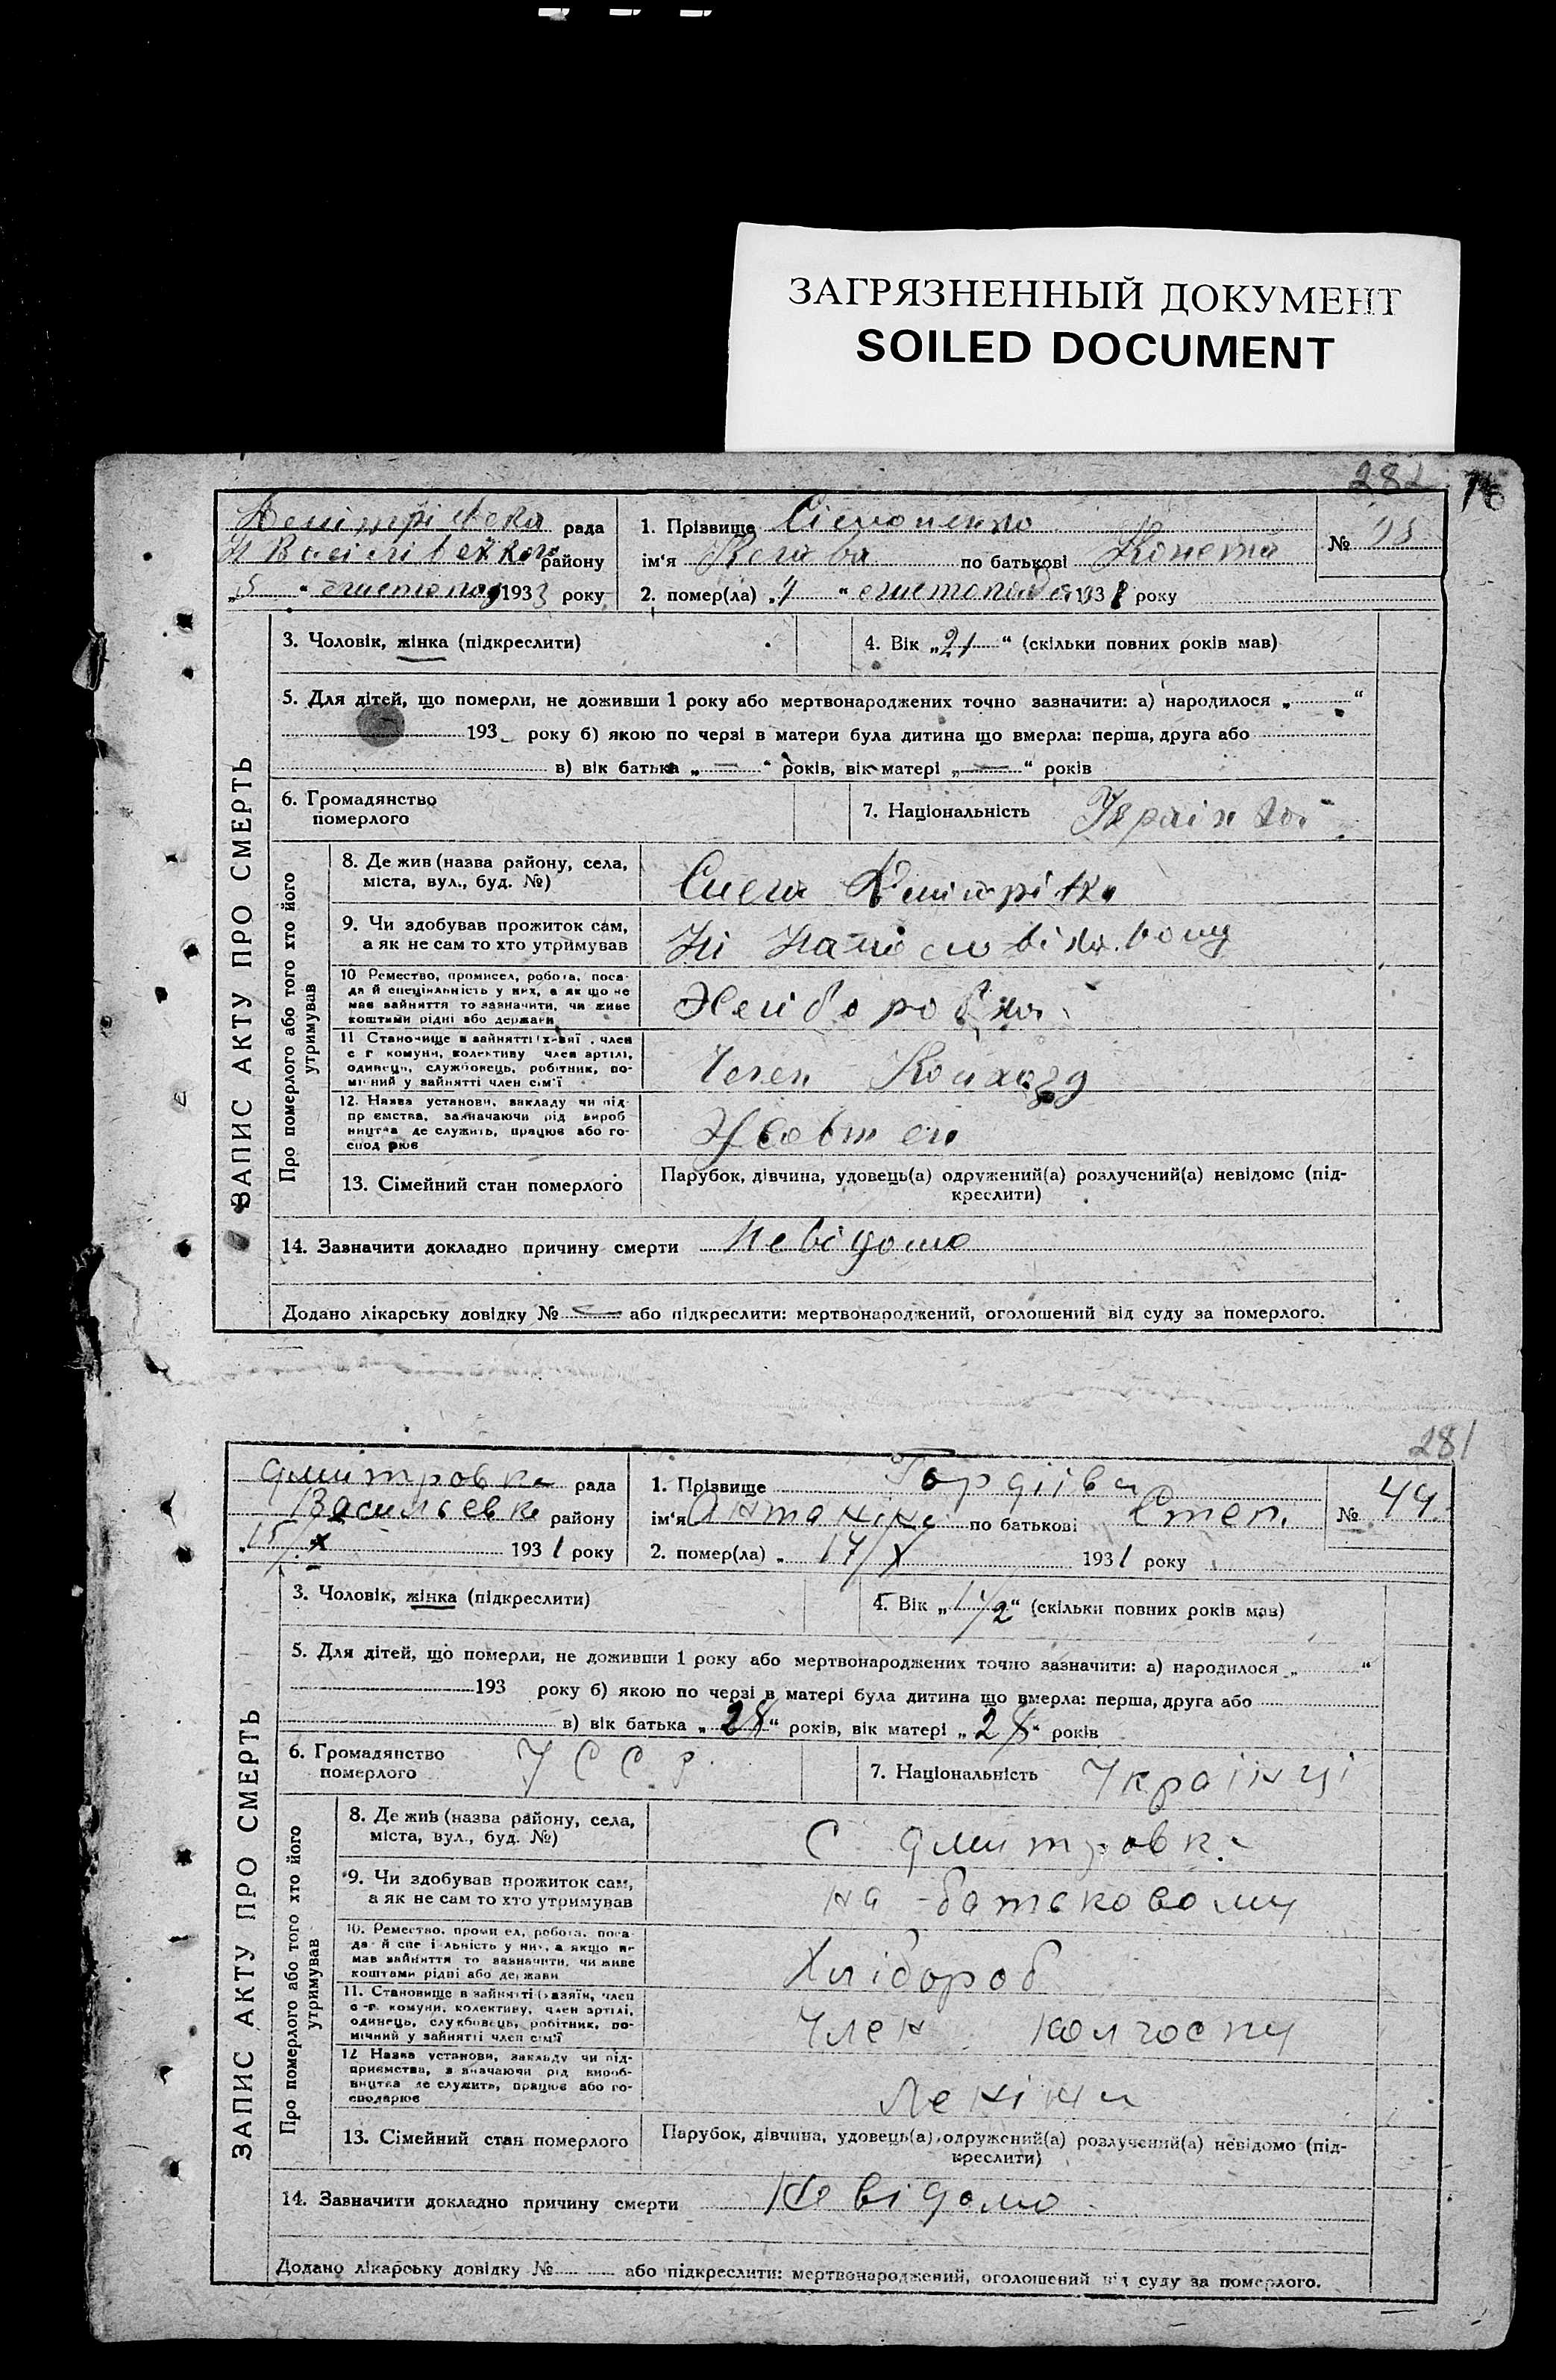 ЗАГРЯЗНЕННЫЙ ДОКУМЕНТ
SOILED DOCUMENT
282 76
рада
району
„5 “ 1933 року
1. Прізвище
ім'я по батькові
2. помер(ла) „4 “ 193 року
№
ЗАПИС АКТУ ПРО СМЕРТЬ
3. Чоловік, жінка (підкреслити)
4. Вік „21“ (скільки повних років мав)
5. Для дітей, що померли, не доживши 1 року або мертвонароджених точно зазначити: а) народилося „ “
193 року б) якою по черзі в матери була дитина що вмерла: перша, друга або
в) вік батька „—“ років, вік матері „—“ років
6. Громадянство
померлого
7. Національність
Про померлого або того хто його
утримував
8. Де жив (назва району, села,
міста, вул., буд. №)
9. Чи здобував прожиток сам,
а як не сам то хто утримував
10 Ремество, промисел, робота, поса-
да й спеціяльність у них, а як що не
мав зайняття то зазначити, чи живе
коштами рідні або держави
11 Становище в зайнятті член
с г комуни, колективу член артілі,
одинець, службовець, робітник, по-
мічний у зайнятті член сім'ї
Член Колхозу
12. Назва установи, закладу чи під-
приємства, зазначаючи рід вироб
ництва де служить, працює або го-
сподарює
Жовтень
13. Сімейний стан померлого
Парубок, дівчина, удовець(а) одружений(а) розлучений(а) невідомо (під-
креслити)
14. Зазначити докладно причину смерти невідомо
Додано лікарську довідку № — або підкреслити: мертвонароджений, оголошений від суду за померлого.
281
Дмитровка рада
Васильевка району
15/X 1931 року
1. Прізвище Гордіїва
ім'я Антаніна по батькові Степ.
2. помер(ла) „ 14/X 1931 року
№ 44
ЗАПИС АКТУ ПРО СМЕРТЬ
3. Чоловік, жінка (підкреслити)
4. Вік „1 1/2“ (скільки повних років мав)
5. Для дітей, що померли, не доживши 1 року або мертвонароджених точно зазначити: а) народилося „ “
193 року б) якою по черзі в матері була дитина що вмерла: перша, друга або
в) вік батька „28“ років, вік матері „28“ років
6. Громадянство
померлого
УССР
7. Національність Українці
Про померлого або того хто його
утримував
8. Де жив (назва району, села,
міста, вул., буд. №)
С Дмитровка
9. Чи здобував прожиток сам,
а як не сам то хто утримував
на батьковому
10. Ремество, промисел, робота, поса-
да й спеціяльність у них, а якщо не
мав зайняття то зазначити, чи живе
коштами рідні або держави
Хлібороб
11. Становище в зайнятті хазяїн, член
с-г. комуни, колективу, член артілі,
одинець, службовець, робітник, по-
мічний у зайнятті член сім'ї
Член колгоспу
12 Назва установи, закладу чи під-
приємства, зазначаючи рід вироб-
ництва де служить, працює або го-
сподарює
Леніна
13. Сімейний стан померлого
Парубок, дівчина, удовець(а), одружений(а) розлучений(а) невідомо (під-
креслити)
14. Зазначити докладно причину смерти Невідомо
Додано лікарську довідку № або підкреслити: мертвонароджений, оголошений від суду за померлого.